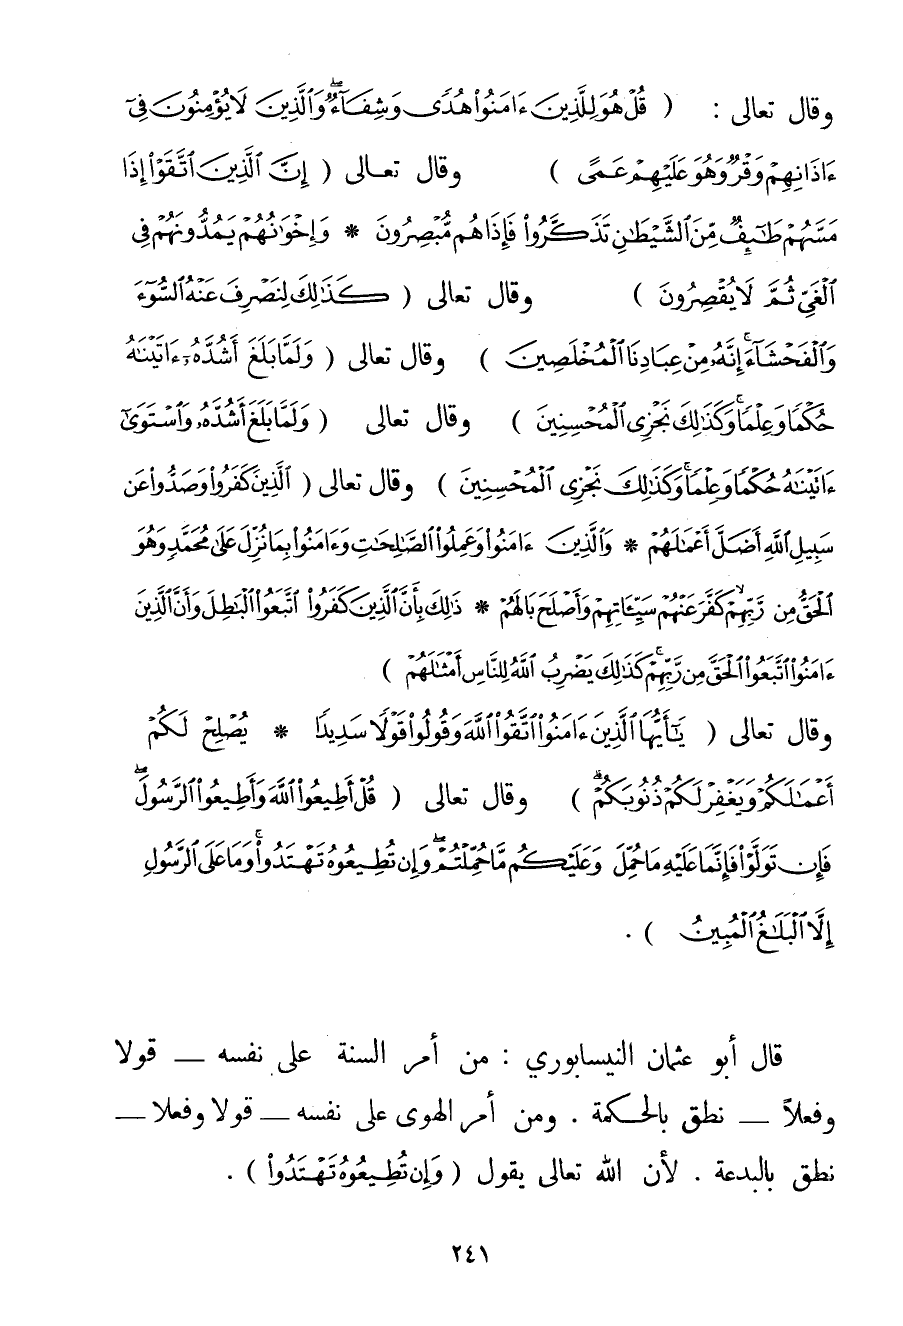 وقال تعالى : ( قُلْ هُوَ لِلَّذِينَ ءَامَنُوا۟ هُدًى وَشِفَآءٌ ۖ وَٱلَّذِينَ لَا يُؤْمِنُونَ فِىٓ
ءَاذَانِهِمْ وَقْرٌ وَهُوَ عَلَيْهِمْ عَمًى ) وقال تعالى ( إِنَّ ٱلَّذِينَ ٱتَّقَوْا۟ إِذَا
مَسَّهُمْ طَٰٓئِفٌ مِّنَ ٱلشَّيْطَٰنِ تَذَكَّرُوا۟ فَإِذَا هُم مُّبْصِرُونَ * وَإِخْوَٰنُهُمْ يَمُدُّونَهُمْ فِى
ٱلْغَىِّ ثُمَّ لَا يُقْصِرُونَ ) وقال تعالى ( كَذَٰلِكَ لِنَصْرِفَ عَنْهُ ٱلسُّوٓءَ
وَٱلْفَحْشَآءَ ۚ إِنَّهُۥ مِنْ عِبَادِنَا ٱلْمُخْلَصِينَ ) وقال تعالى ( وَلَمَّا بَلَغَ أَشُدَّهُۥٓ ءَاتَيْنَٰهُ
حُكْمًا وَعِلْمًا ۚ وَكَذَٰلِكَ نَجْزِى ٱلْمُحْسِنِينَ ) وقال تعالى ( وَلَمَّا بَلَغَ أَشُدَّهُۥ وَٱسْتَوَىٰٓ
ءَاتَيْنَٰهُ حُكْمًا وَعِلْمًا ۚ وَكَذَٰلِكَ نَجْزِى ٱلْمُحْسِنِينَ ) وقال تعالى ( ٱلَّذِينَ كَفَرُوا۟ وَصَدُّوا۟ عَن
سَبِيلِ ٱللَّهِ أَضَلَّ أَعْمَٰلَهُمْ * وَٱلَّذِينَ ءَامَنُوا۟ وَعَمِلُوا۟ ٱلصَّٰلِحَٰتِ وَءَامَنُوا۟ بِمَا نُزِّلَ عَلَىٰ مُحَمَّدٍ وَهُوَ
ٱلْحَقُّ مِن رَّبِّهِمْ ۙ كَفَّرَ عَنْهُمْ سَيِّـَٔاتِهِمْ وَأَصْلَحَ بَالَهُمْ * ذَٰلِكَ بِأَنَّ ٱلَّذِينَ كَفَرُوا۟ ٱتَّبَعُوا۟ ٱلْبَٰطِلَ وَأَنَّ ٱلَّذِينَ
ءَامَنُوا۟ ٱتَّبَعُوا۟ ٱلْحَقَّ مِن رَّبِّهِمْ ۚ كَذَٰلِكَ يَضْرِبُ ٱللَّهُ لِلنَّاسِ أَمْثَٰلَهُمْ )
وقال تعالى ( يَٰٓأَيُّهَا ٱلَّذِينَ ءَامَنُوا۟ ٱتَّقُوا۟ ٱللَّهَ وَقُولُوا۟ قَوْلًا سَدِيدًا * يُصْلِحْ لَكُمْ
أَعْمَٰلَكُمْ وَيَغْفِرْ لَكُمْ ذُنُوبَكُمْ ۗ ) وقال تعالى ( قُلْ أَطِيعُوا۟ ٱللَّهَ وَأَطِيعُوا۟ ٱلرَّسُولَ ۖ
فَإِن تَوَلَّوْا۟ فَإِنَّمَا عَلَيْهِ مَا حُمِّلَ وَعَلَيْكُم مَّا حُمِّلْتُمْ ۖ وَإِن تُطِيعُوهُ تَهْتَدُوا۟ ۚ وَمَا عَلَى ٱلرَّسُولِ
إِلَّا ٱلْبَلَٰغُ ٱلْمُبِينُ ) .
قال أبو عثمان النيسابوري : من أمر السنة على نفسه — قولا
وفعلاً — نطق بالحكمة . ومن أمر الهوى على نفسه — قولا وفعلا —
نطق بالبدعة . لأن الله تعالى يقول ( وَإِن تُطِيعُوهُ تَهْتَدُوا۟ ) .
٢٤١